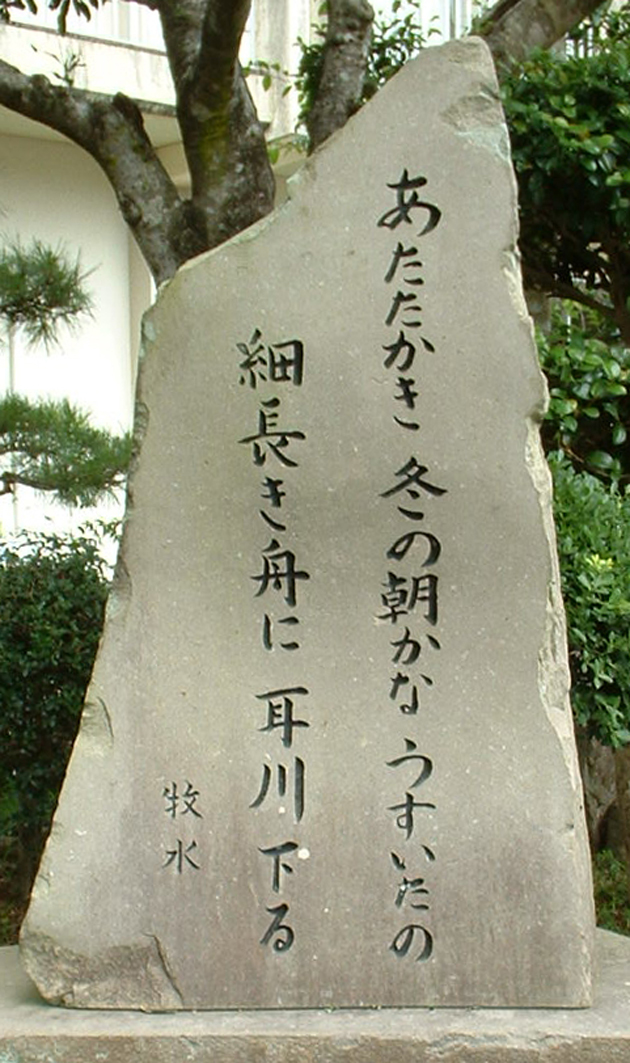 あたたかき 冬の朝かな うすいたの
細長き舟に 耳川 下る
牧水